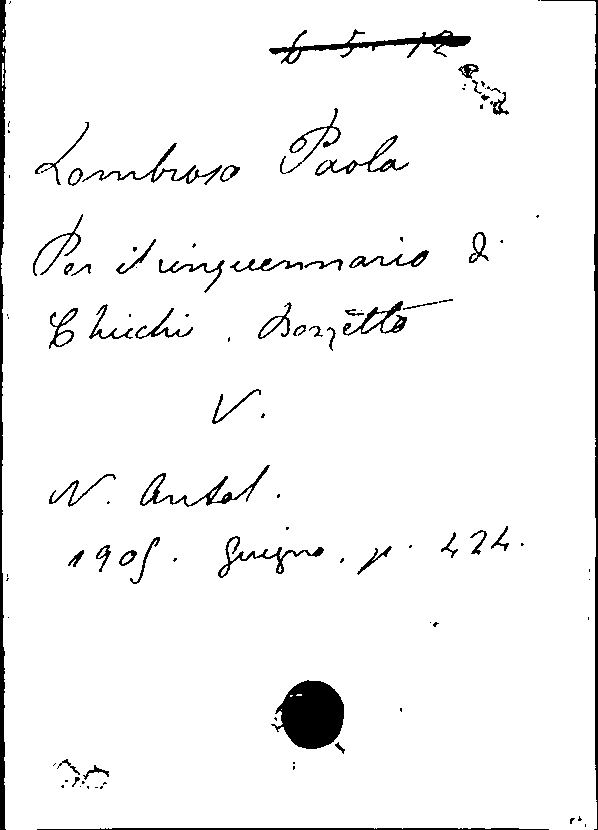 6 5. 12
Lombroso Paola
Per il cinquennario di
Chicchi. Bozzetto
V.
N. Antol.
1905. Giugno, p. 424.